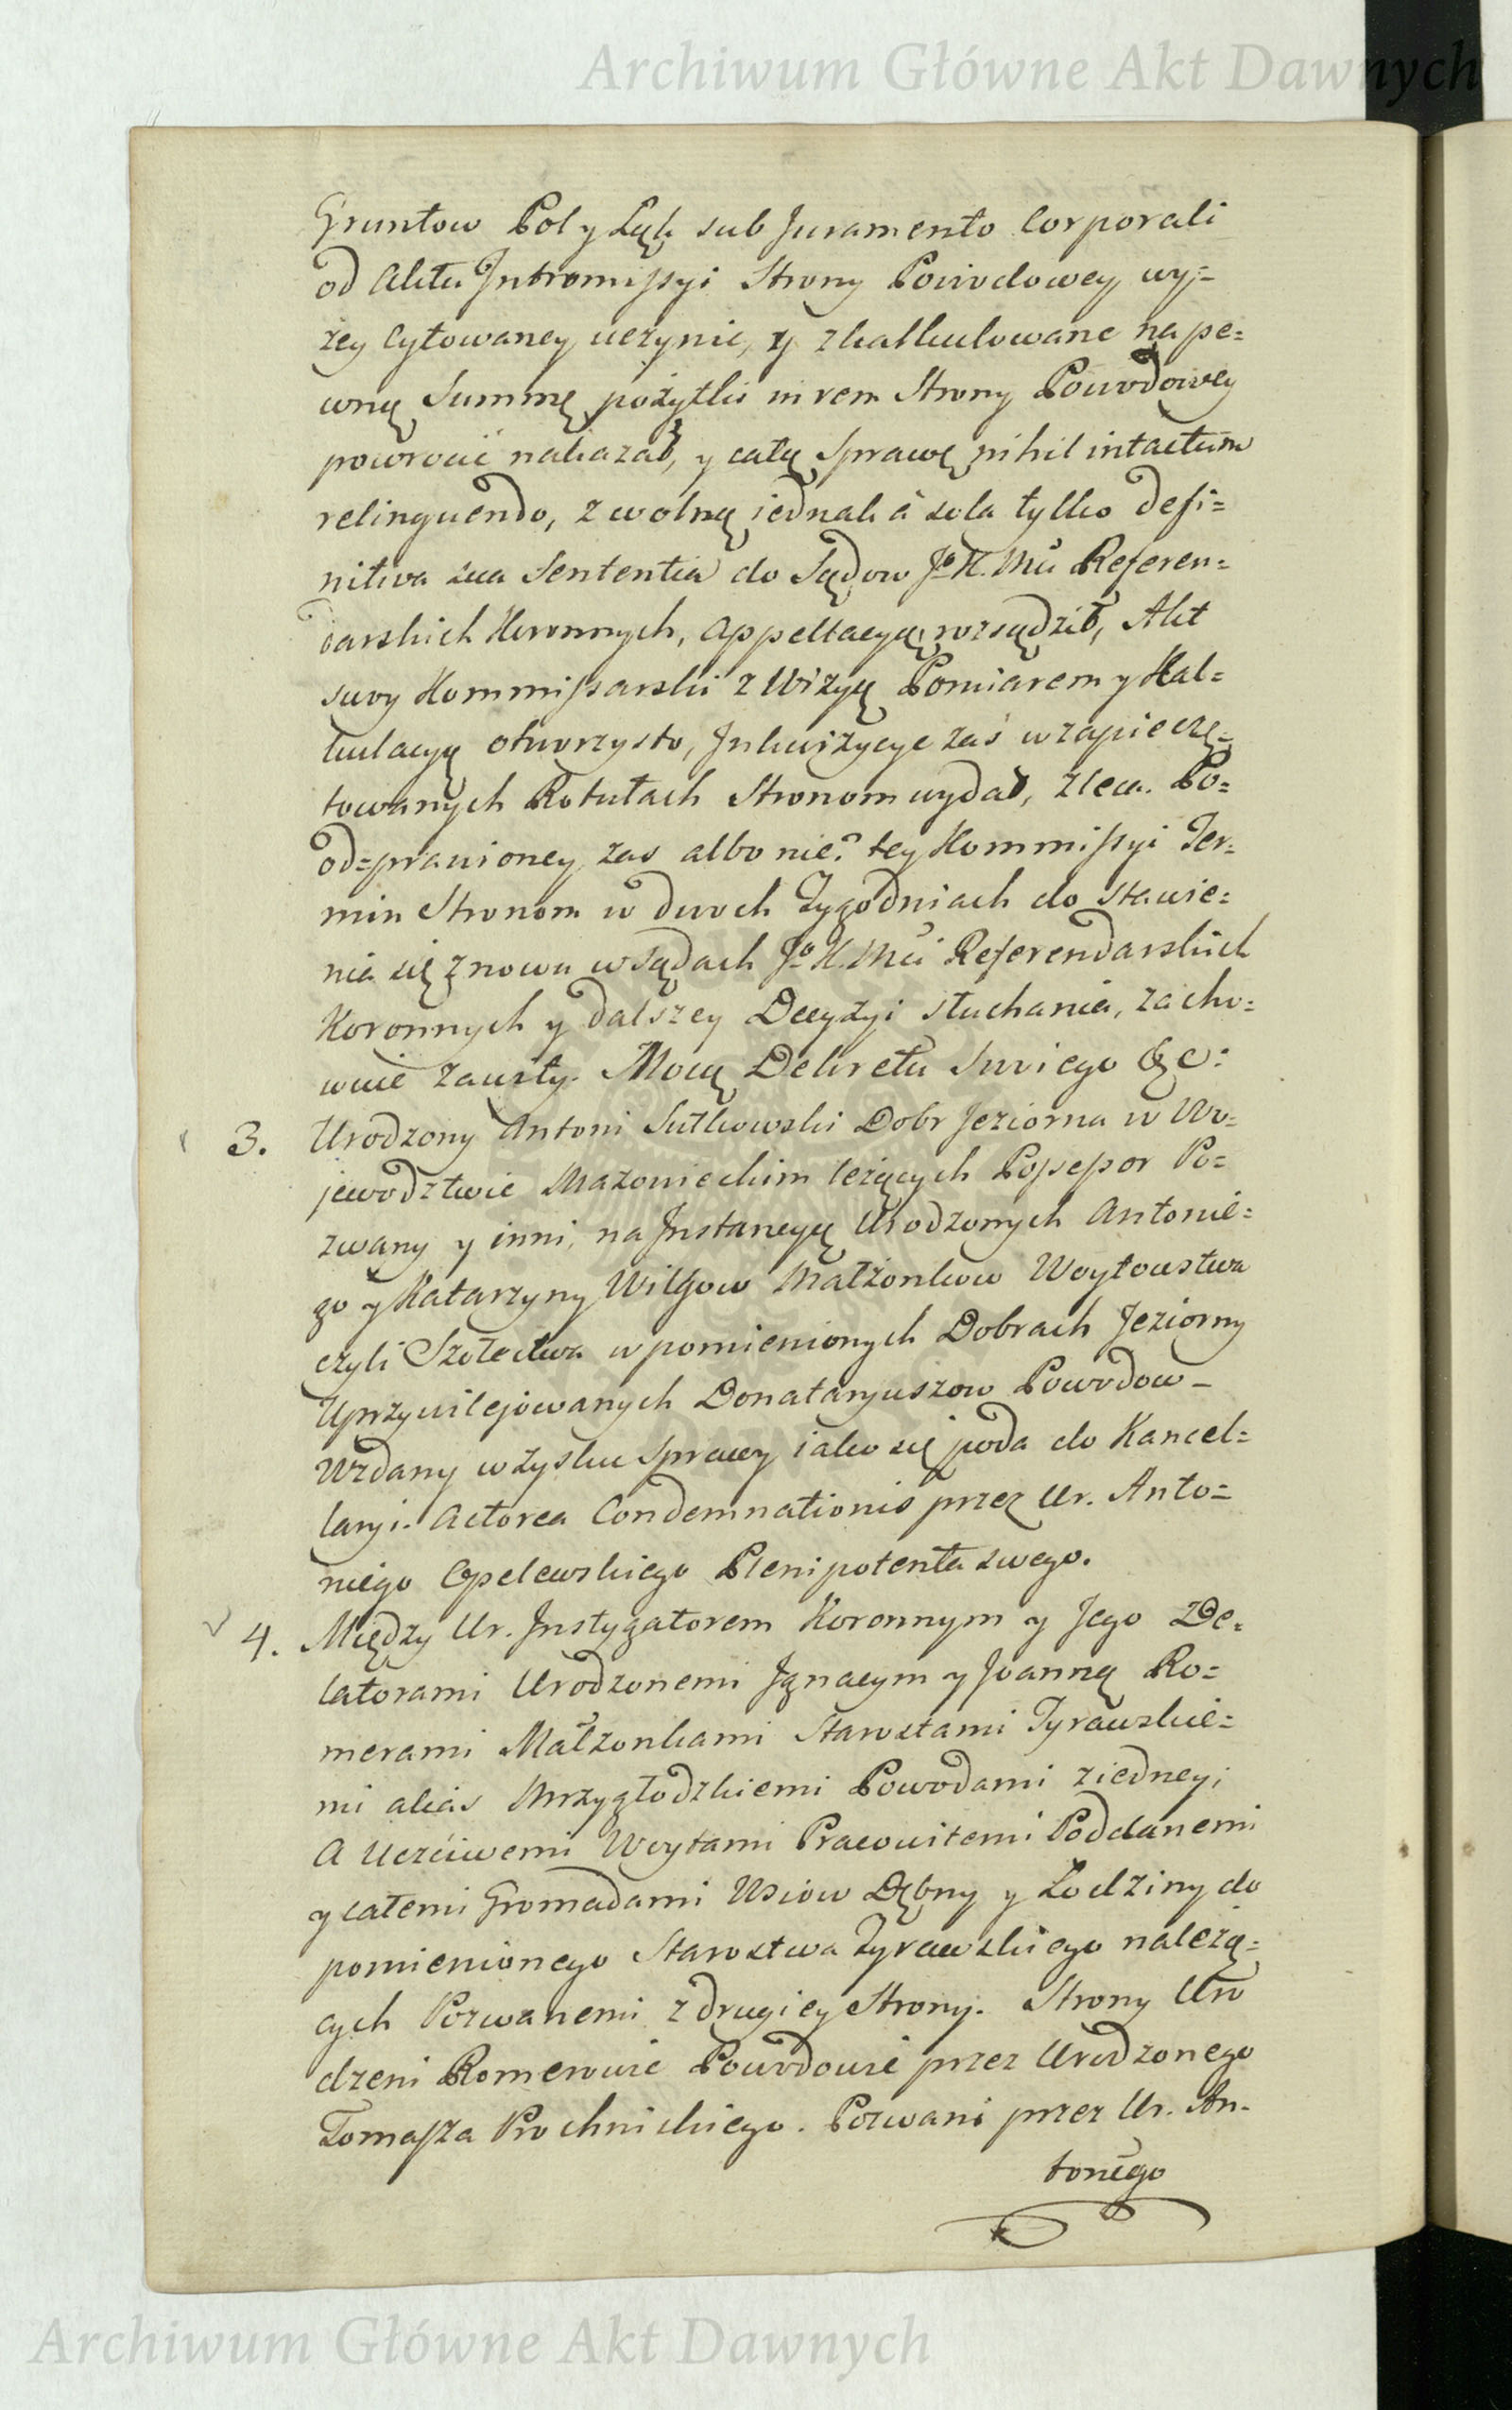 Archiwum Główne Akt Dawnych
Gruntow Pol y Łąk sub Juramento Corporali
od Aktu Intromissyi Strony Powodowey wy=
zey Cytowaney uczynić, y zkalkulowane na pe=
wną Summę pożytki in rem Strony Powodowey
powrocić nakazał, y całą Sprawę nihil intactum
relinquendo, z wolną iednak à sola tylko defi=
nitiva sua Sententia do Sądow Jº K. Mci Referen=
darskich Koronnych, Appellacyą rozsądził, Akt
swoy Kommissarski z Wizyą Pomiarem y Kal=
kulacyą otworzysto, Inkwizycye zaś w zapieczę=
towanych Rotułach Stronom wydał, zleca. Po=
od=prawioney zas albo nie? tey Kommissyi Ter=
min Stronom w dwoch Tygodniach do stawie=
nia się znowu w Sądach Jº K. Mci Referendarskich
Koronnych y dalszey Decyzyi słuchania, zacho=
wuie zawity. Mocą Dekretu Swiego &c:
3. Urodzony Antoni Sułkowski Dobr Jeziorna w Wo=
jewodztwie Mazowieckim leżących Possessor Po=
zwany y inni, na Instancyą Urodzonych Antonie=
go y Katarzyny Wilgow Małżonkow Woytowstwa
czyli Szołectwa w pomienionych Dobrach Jeziorny
Uprzywilejowanych Donataryuszow Powodow –
Wzdany w zysku Sprawy iako się poda do Kancel=
laryi. Actorea Condemnationis przez Ur. Anto=
niego Opelewskiego Plenipotenta swego.
4. Między Ur. Instygatorem Koronnym y Jego De=
latorami Urodzonemi Ignacym y Joanną Ro=
merami Małżonkami Starostami Tyrawskie=
mi alias Mrzygłodzkiemi Powodami z iedney;
A Uczciwemi Woytami Pracowitemi Poddanemi
y całemi Gromadami Wsiow Dębny y Łodziny do
pomienionego Starostwa Tyrawskiego należą=
cych Pozwanemi z drugiey Strony. Strony Uro
dzeni Romerowie Powodowie przez Urodzonego
Tomasza Prochnickiego. Pozwani przez Ur. An-
toniego
Archiwum Główne Akt Dawnych